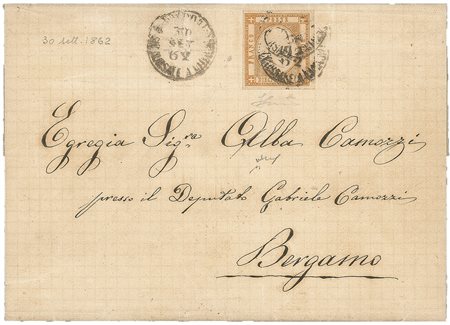 30 sett. 1862
Egregia Sig.ra Alba Camozzi
presso il Deputato Gabriele Camozzi
Bergamo